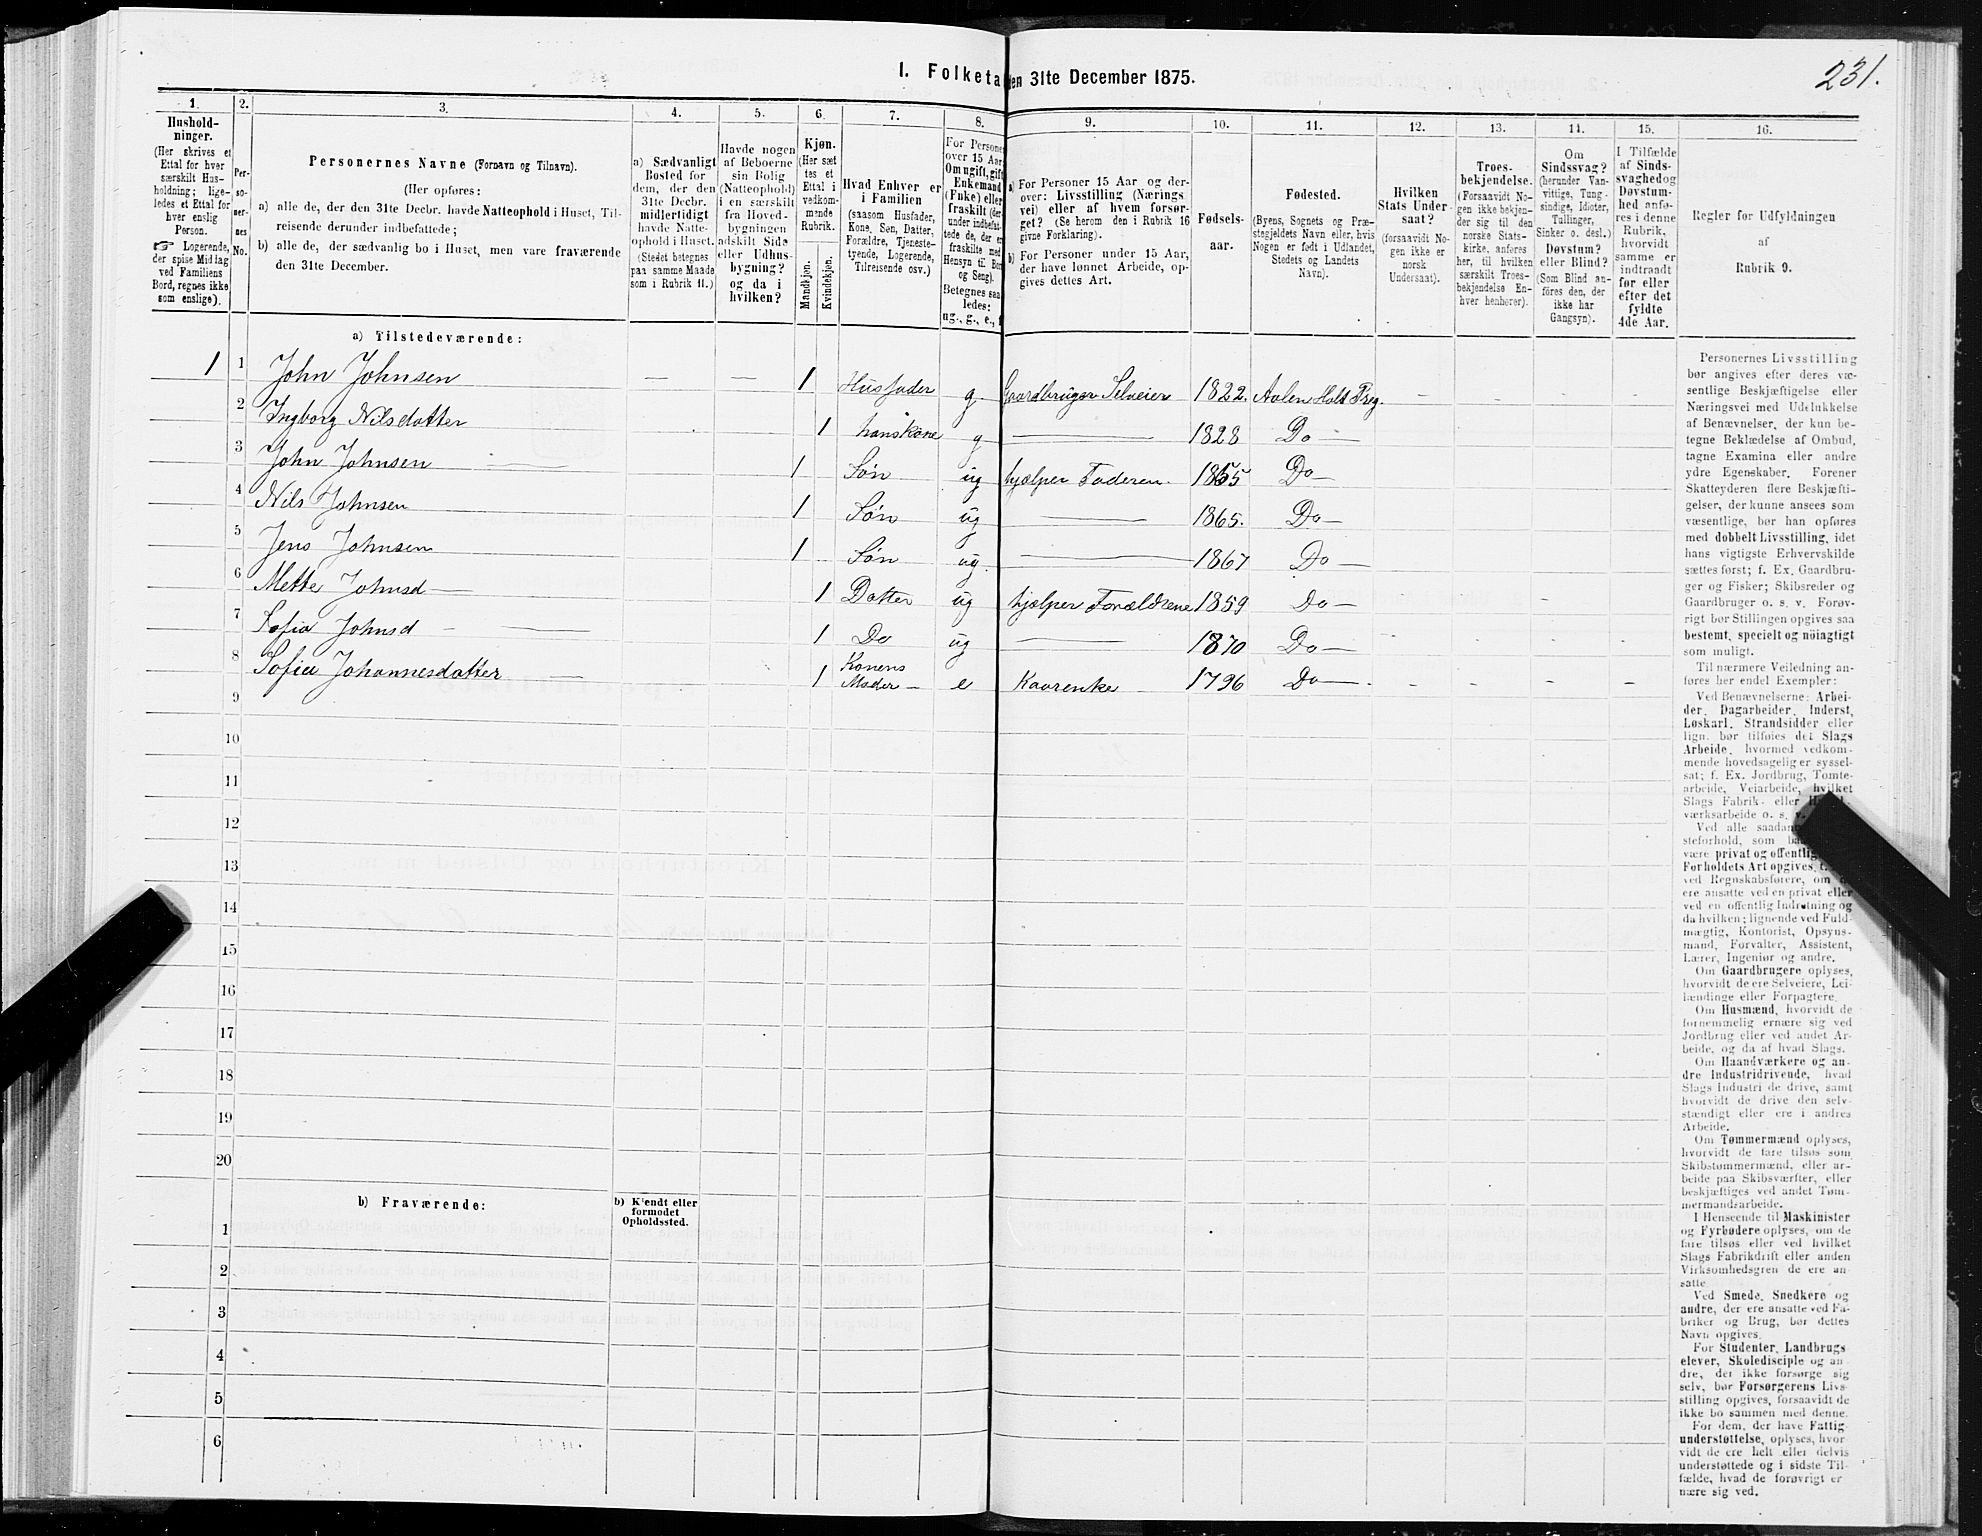 231.
I. Folketa
den 31te December 1875.
1.
Hushold-
ninger.
(Her skrives et
Ettal for hver
særskilt Hus-
holdning; lige-
ledes et Ettal for
hver enslig
Person.
☞ Logerende,
der spise Middag
ved Familiens
Bord, regnes ikke
som enslige).
2.
Per-
so-
ner-
nes
No.
3.
Personernes Navne (Fornavn og Tilnavn).
(Her opføres:
a) alle de, der den 31te Decbr. havde Natteophold i Huset, Til-
reisende derunder indbefattede;
b) alle de, der sædvanlig bo i Huset, men vare fraværende
den 31te December.
4.
a) Sædvanligt
Bosted for
dem, der den
31te Decbr.
midlertidigt
havde Natte-
ophold i Huset.
(Stedet betegnes
paa samme Maade
som i Rubrik 11.)
5.
Havde nogen
af Beboerne
sin Bolig
(Natteophold)
i en særskilt
fra Hoved-
bygningen
adskilt Side
eller Udhus-
bygning?
og da i
hvilken?
6.
Kjøn.
(Her sæt
tes et
Ettal i
vedkom-
mende
Rubrik.
Mandkjøn.
Kvindekjøn.
7.
Hvad Enhver er
i Familien
(saasom Husfader,
Kone, Søn, Datter,
Forældre, Tjeneste-
tyende, Logerende,
Tilreisende osv.)
8.
For Persone
over 15 Aar
Om ugift, gift
Enkemand
(Enke) eller
fraskilt (der
under indbefat-
tede de, der er
fraskilte med
Hensyn til Bor
og Seng).
Betegnes saa
ledes:
ug., g., e., f
9.
a) For Personer 15 Aar og der-
over: Livsstilling (Nærings
vei) eller af hvem forsør-
get? (Se herom den i Rubrik 16
givne Forklaring).
b) For Personer under 15 Aar,
der have lønnet Arbeide, op-
gives dettes Art.
10.
Fødsels-
aar.
11.
Fødested.
(Byens, Sognets og Præ-
stegjeldets Navn eller, hvis
Nogen er født i Udlandet,
Stedets og Landets
Navn).
12.
Hvilken
Stats Under-
saat?
(forsaavidt No-
gen ikke er
norsk
Undersaat).
13.
Troes-
bekjendelse.
(Forsaavidt No-
gen ikke bekjen-
der sig til den
norske Stats-
kirke, anføres
her, til hvilken
særskilt Troes-
bekjendelse En-
hver henhører).
14.
Om
Sindssvag?
(herunder Van-
vittige, Tung-
sindige, Idioter,
Tullinger,
Sinker o. desl.)
Døvstum?
eller Blind?
(Som Blind an-
føres den, der
ikke har
Gangsyn).
15.
I Tilfælde
af Sinds-
svaghed og
Døvstum-
hed anfø-
res i denne
Rubrik,
hvorvidt
samme er
indtraadt
før eller
efter det
fyldte
4de Aar.
16.
Regler før Udfyldningen
af
Rubrik 9.
a) Tilstedeværende:
1 1 John Johnsen — — 1 Husfader g Gaardbruger Selveier 1822. Aalen Holt Preg.
2 Ingborg Nilsdatter 1 hans kone g — 1828 Do —
3 John Johnsen 1 Søn ug hjælper Faderen. 1855 Do —
4 Nils Johnsen 1 Søn ug — 1865. Do —
5 Jens Johnsen 1 Søn ug. — 1867 Do —
6 Mette Johnsd — 1 Datter ug hjælper Forældrene 1859 Do —
7 Sofia Johnsd — 1 Do ug — 1870 Do —
8 Sofia Johannesdatter — 1 Konens
Moder — e Kaarenke 1796 Do —
9
10
11
12
13
14
15
16
17
18
19
20
b) Fraværende:
b) Kjendt eller
formodet
Opholdssted.
1
2
3
4
5
6
Personernes Livsstilling
bør angives efter deres væ-
sentlige Beskjæftigelse eller
Næringsvei med Udelukkelse
af Benævnelser, der kun be-
tegne Beklædelse af Ombud,
tagne Examina eller andre
ydre Egenskaber. Forener
Skatteyderen flere Beskjæfti-
gelser, der kunne ansees som
væsentlige, bør han opføres
med dobbelt Livsstilling, idet
hans vigtigste Erhvervskilde
sættes først; f. Ex. Gaardbru-
ger og Fisker; Skibsreder og
Gaardbruger o. s. v. Forøv-
rigt bør Stillingen opgives saa
bestemt, specielt og nöiagtigt
som muligt.
Til nærmere Veiledning an-
føres her endel Exempler:
Ved Benævnelserne: Arbei-
der, Dagarbeider, Inderst,
Løskarl, Strandsidder eller
lign. bør tilføies det Slags
Arbeide, hvormed vedkom-
mende hovedsagelig er syssel-
sat; f. Ex. Jordbrug, Tomte-
arbeide, Veiarbeide, hvilket
Slags Fabrik- eller
værksarbeide o. s. v.
Ved alle saadan
steforhold, som
være privat og offentlig
Forholdets Art opgives,
ved Regnskabsførere, om
ere ansatte ved en privat eller
ved en offentlig Indretning og
da hvilken; lignende ved Fuld-
mægtig, Kontorist, Opsyns-
mand, Forvalter, Assistent,
Lærer, Ingeniør og andre.
Om Gaardbrugere oplyses,
hvorvidt de ere Selveiere, Lei-
lændinge eller Forpagtere.
Om Husmænd, hvorvidt de
fornemmelig ernære sig ved
Jordbrug eller ved andet Ar-
beide, og da af hvad Slags.
Om Haandværkere og an-
dre Industridrivende, hvad
Slags Industri de drive, samt
hvorvidt de drive den selv-
stændigt eller ere i andres
Arbeide.
Om Tømmermænd oplyses,
hvorvidt de fare tilsøs som
Skibstømmermænd, eller ar-
beide paa Skibsværfter, eller
beskjæftiges ved andet Tøm-
mermandsarbeide.
I Henseende til Maskinister
og Fyrbødere oplyses, om de
fare tilsøs eller ved hvilket
Slags Fabrikdrift eller anden
Virksomhedsgren de ere an-
satte.
Ved Smede, Snedkere og
andre, der ere ansatte ved Fa-
briker og Brug, bør dettes
Navn opgives.
For Studenter, Landbrugs
elever, Skoledisciple og an-
dre, der ikke forsørge sig
selv, bør Forsørgerens Livs-
stilling opgives, forsaavidt de
ikke bo sammen med denne.
For dem, der have Fattig-
understøttelse, oplyses, hvor
vidt de ere helt eller delvis
understøttede og i sidste Til-
fælde, hvad de forøvrigt er
nære sig ved.